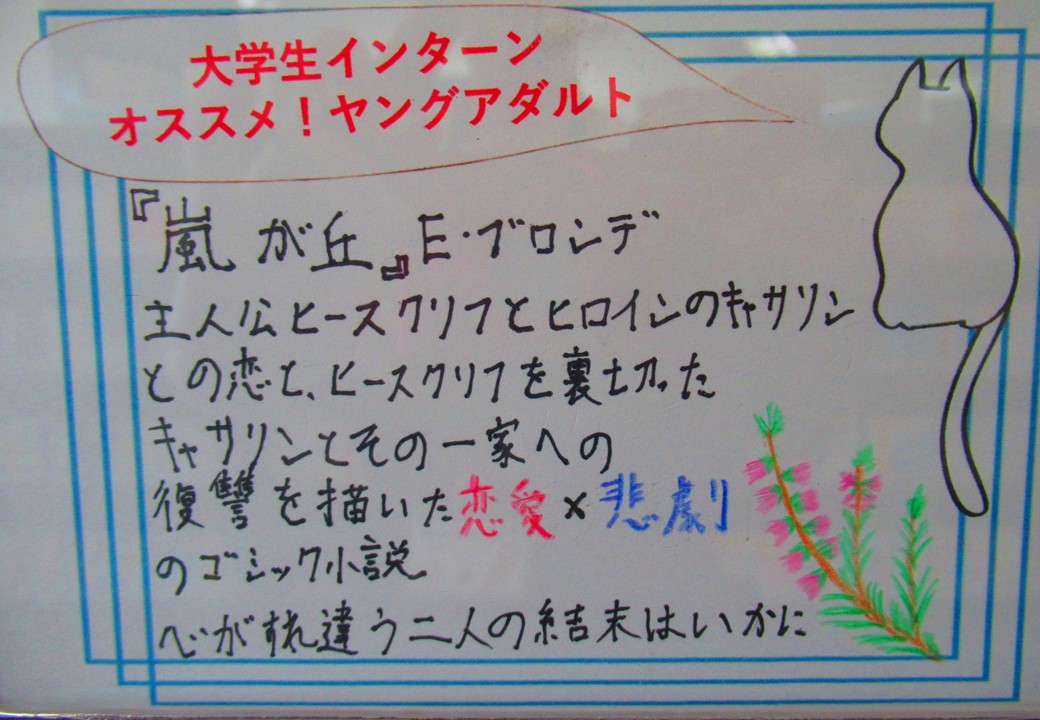 大学生インターン
オススメ！ヤングアダルト
『嵐が丘』E・ブロンデ
主人公ヒースクリフとヒロインのキャサリン
との恋と、ヒースクリフを裏切った
キャサリンとその一家への
復讐を描いた恋愛×悲劇
のゴシック小説
心がすれ違う二人の結末はいかに